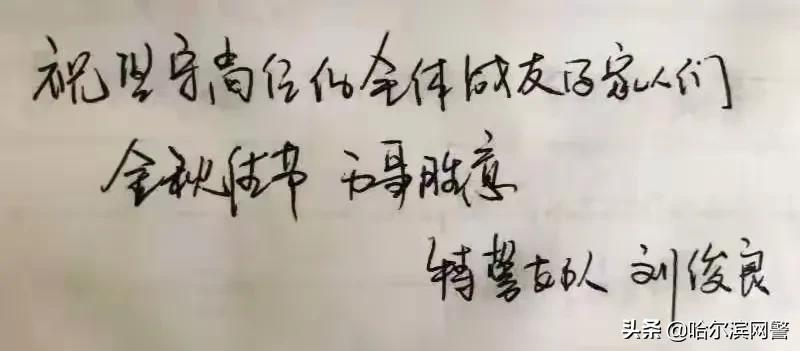 祝坚守岗位的全体战友及家人们
金秋佳节 万事胜意
特警支队 刘俊良
头条 @哈尔滨网警